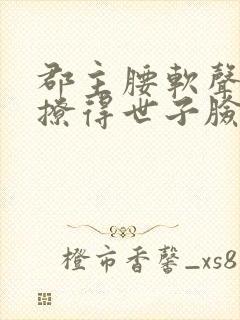 郡主腰軟聲
撩得世子臉
橙市香馨_xs8